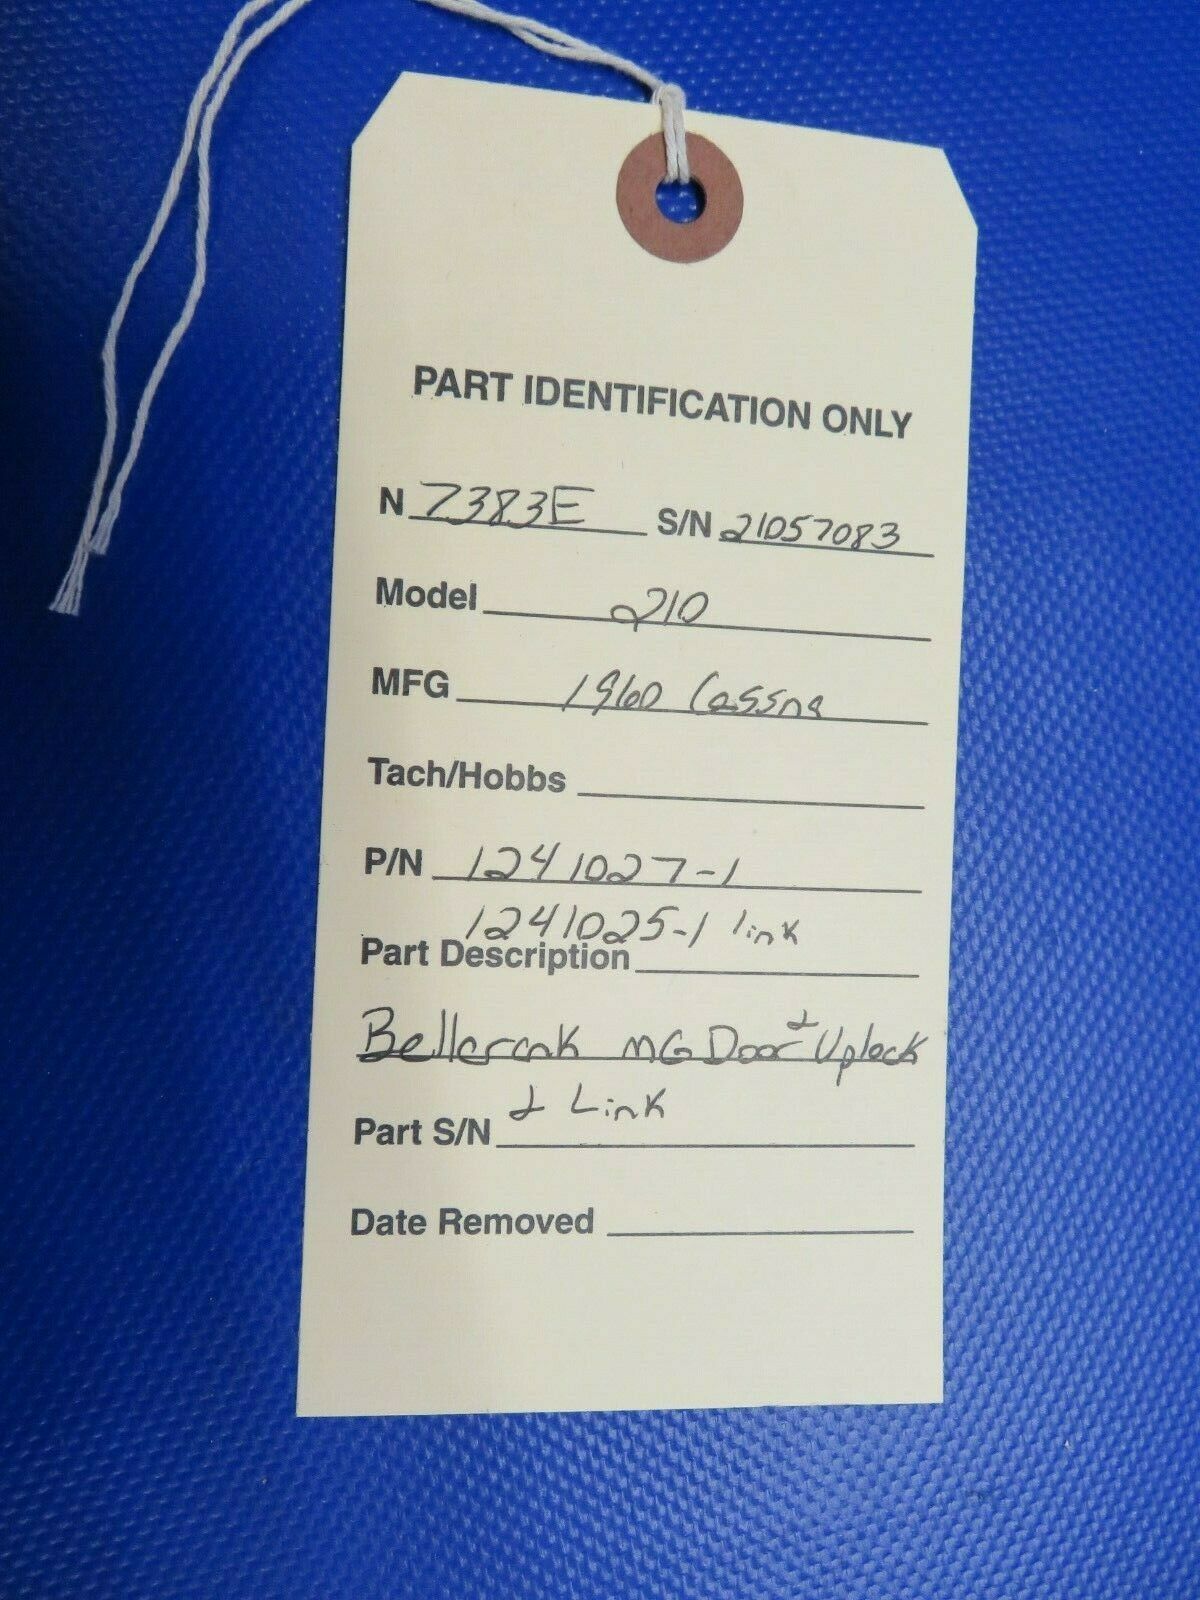 PART IDENTIFICATION ONLY
N 7383E S/N 21057083
Model 210
MFG 1960 Cessna
Tach/Hobbs
P/N 1241027-1
1241025-1 link
Part Description
Bellcrank MG Door & Uplock
& Link
Part S/N
Date Removed